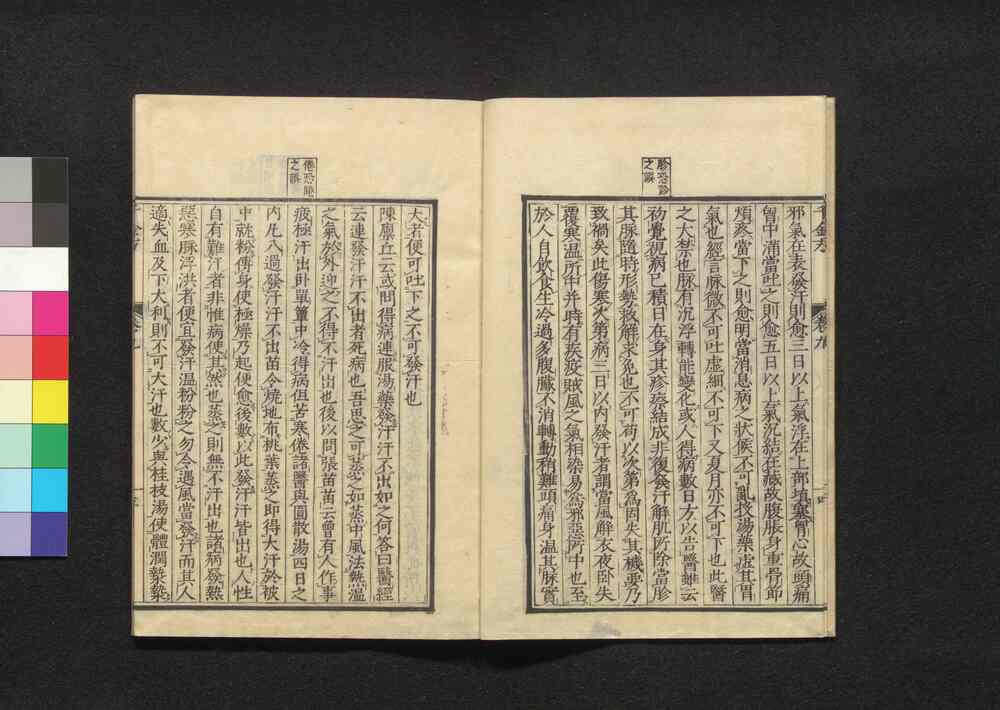 千金方
卷九
胗恐診
之誤
邪氣在表發汗則愈三日以上氣浮在上部塡塞胷心故頭痛
胷中滿當吐之則愈五日以上氣沉結在藏故腹脹身重骨節
煩疼當下之則愈明當消息病之狀候不可亂投湯藥虛其胃
氣也經言脉微不可吐虛細不可下又夏月亦不可下也此醫
之大禁也脉有沉浮轉能變化或人得病數日方以告醫雖云
初覺視病已積日在身其疹瘵結成非復發汗解肌所除當胗
其脉隨時形勢救解求免也不可苟以次第爲固失其機要乃
致禍矣此傷寒次第病三日以内發汗者謂當風解衣夜卧失
覆寒溫所中并時有疾疫賊風之氣相染易爲邪惡所中也至
於人自飲食生冷過多腹臟不消轉動稍難頭痛身温其脉實
倦恐睠
之誤
大者便可吐下之不可發汗也
陳廩丘云或問得病連服湯藥發汗汗不出如之何荅曰醫經
云連發汗汗不出者死病也吾思之可蒸之如蒸中風法熱溫
之氣於外迎之不得不汗出也後以問張苗苗云曾有人作事
疲極汗出卧單簟中冷得病但苦寒倦諸醫與圓散湯四日之
内凡八過發汗汗不出苗令燒地布桃葉蒸之即得大汗於被
中就粉傅身使極燥乃起便愈後數以此發汗汗皆出也人性
自有難汗者非惟病使其然也蒸之則無不汗出也諸病發熱
惡寒脉浮洪者便宜發汗温粉粉之勿令遇風當發汗而其人
適失血及下大利則不可大汗也數少與桂枝湯使體潤漐漐